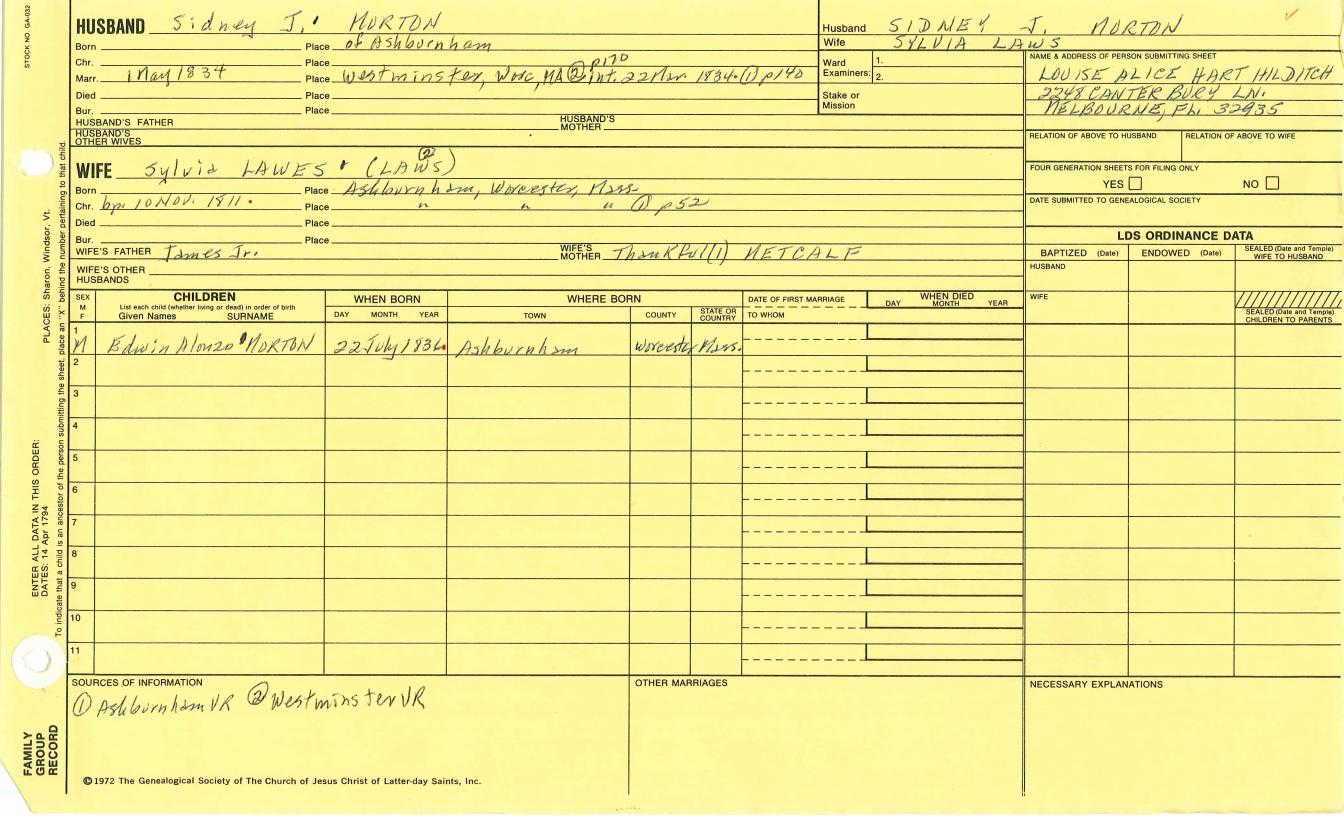 STOCK NO. GA-032
HUSBAND Sidney J. MORTON
Born Place of Ashburnham
Chr. Place p170
Marr. 1 May 1834 Place Westminster, Worc, MA ② int. 22 Mar 1834. ① p140
Died Place
Bur. Place
HUSBAND'S FATHER HUSBAND'S MOTHER
HUSBAND'S OTHER WIVES
Husband SIDNEY J. MORTON
Wife SYLVIA LAWS
Ward Examiners: 1.
2.
Stake or Mission
NAME & ADDRESS OF PERSON SUBMITTING SHEET
LOUISE ALICE HART HILDITCH
2248 CANTERBURY LN.
MELBOURNE, FL. 32935
RELATION OF ABOVE TO HUSBAND RELATION OF ABOVE TO WIFE
FOUR GENERATION SHEETS FOR FILING ONLY
YES NO
DATE SUBMITTED TO GENEALOGICAL SOCIETY
WIFE Sylvia LAWES (LAWS) ②
Born Place Ashburnham, Worcester, Mass.
Chr. bp. 10 Nov. 1811. Place " " " ① p52
Died Place
Bur. Place
WIFE'S FATHER James Jr. WIFE'S MOTHER Thankful (1) METCALF
WIFE'S OTHER HUSBANDS
LDS ORDINANCE DATA
BAPTIZED (Date) ENDOWED (Date) SEALED (Date and Temple) WIFE TO HUSBAND
HUSBAND
WIFE
SEALED (Date and Temple) CHILDREN TO PARENTS
SEX M F
CHILDREN
List each child (whether living or dead) in order of birth
Given Names SURNAME
WHEN BORN
DAY MONTH YEAR
WHERE BORN
TOWN COUNTY STATE OR COUNTRY
DATE OF FIRST MARRIAGE
TO WHOM
WHEN DIED
DAY MONTH YEAR
1 M Edwin Alonzo MORTON 22 July 1836. Ashburnham Worcester Mass.
2
3
4
5
6
7
8
9
10
11
SOURCES OF INFORMATION
① Ashburnham VR ② Westminster VR
OTHER MARRIAGES
NECESSARY EXPLANATIONS
©1972 The Genealogical Society of The Church of Jesus Christ of Latter-day Saints, Inc.
FAMILY GROUP RECORD
ENTER ALL DATA IN THIS ORDER:
DATES: 14 Apr 1794
PLACES: Sharon, Windsor, Vt.
To indicate that a child is an ancestor of the person submitting the sheet, place an "X" behind the number pertaining to that child.